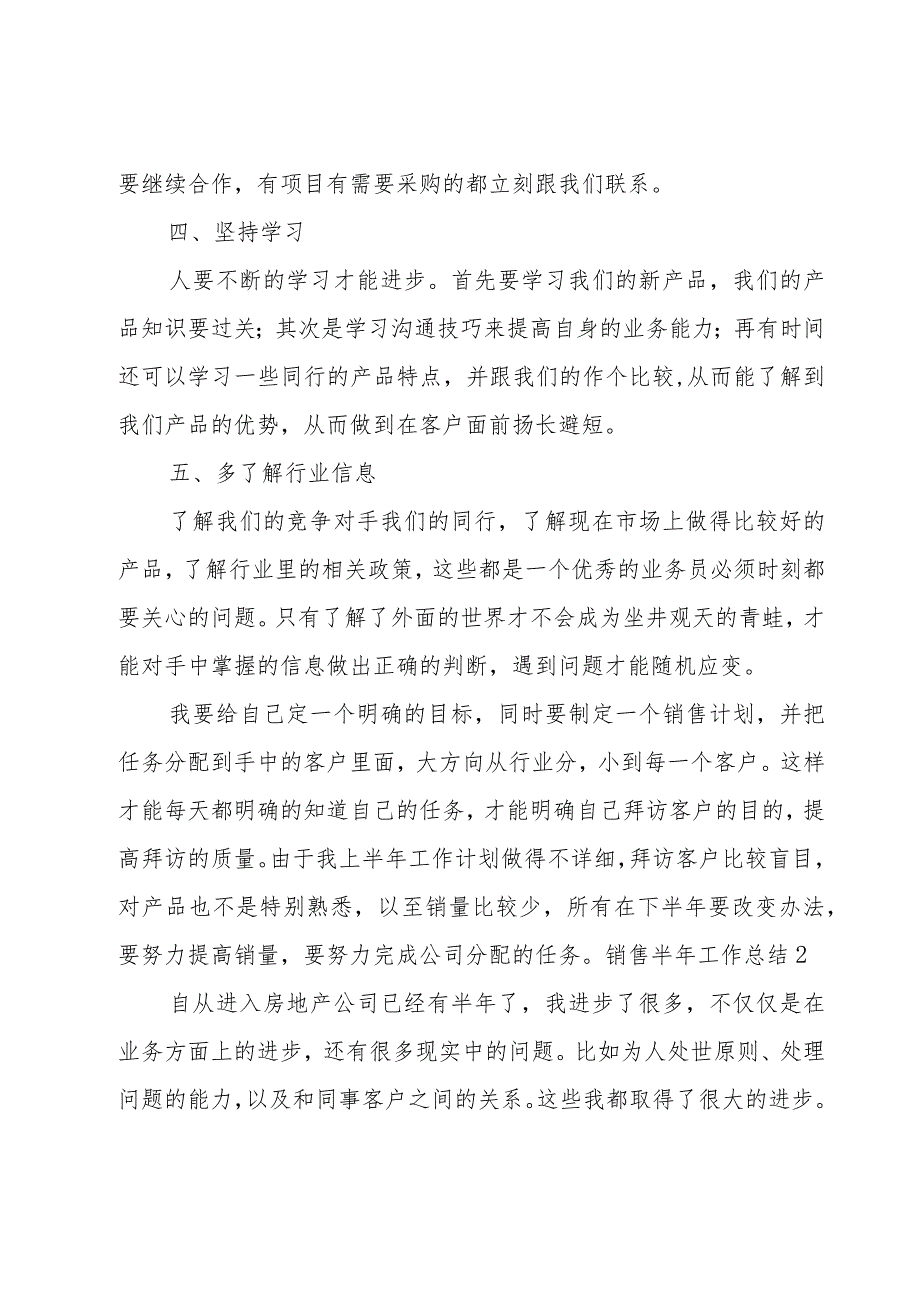 要继续合作，有项目有需要采购的都立刻跟我们联系。
四、坚持学习
人要不断的学习才能进步。首先要学习我们的新产品，我们的产
品知识要过关；其次是学习沟通技巧来提高自身的业务能力；再有时间
还可以学习一些同行的产品特点，并跟我们的作个比较,从而能了解到
我们产品的优势，从而做到在客户面前扬长避短。
五、多了解行业信息
了解我们的竞争对手我们的同行，了解现在市场上做得比较好的
产品，了解行业里的相关政策，这些都是一个优秀的业务员必须时刻都
要关心的问题。只有了解了外面的世界才不会成为坐井观天的青蛙，才
能对手中掌握的信息做出正确的判断，遇到问题才能随机应变。
我要给自己定一个明确的目标，同时要制定一个销售计划，并把
任务分配到手中的客户里面，大方向从行业分，小到每一个客户。这样
才能每天都明确的知道自己的任务，才能明确自己拜访客户的目的，提
高拜访的质量。由于我上半年工作计划做得不详细，拜访客户比较盲目，
对产品也不是特别熟悉，以至销量比较少，所有在下半年要改变办法，
要努力提高销量，要努力完成公司分配的任务。销售半年工作总结2
自从进入房地产公司已经有半年了，我进步了很多，不仅仅是在
业务方面上的进步，还有很多现实中的问题。比如为人处世原则、处理
问题的能力,以及和同事客户之间的关系。这些我都取得了很大的进步。